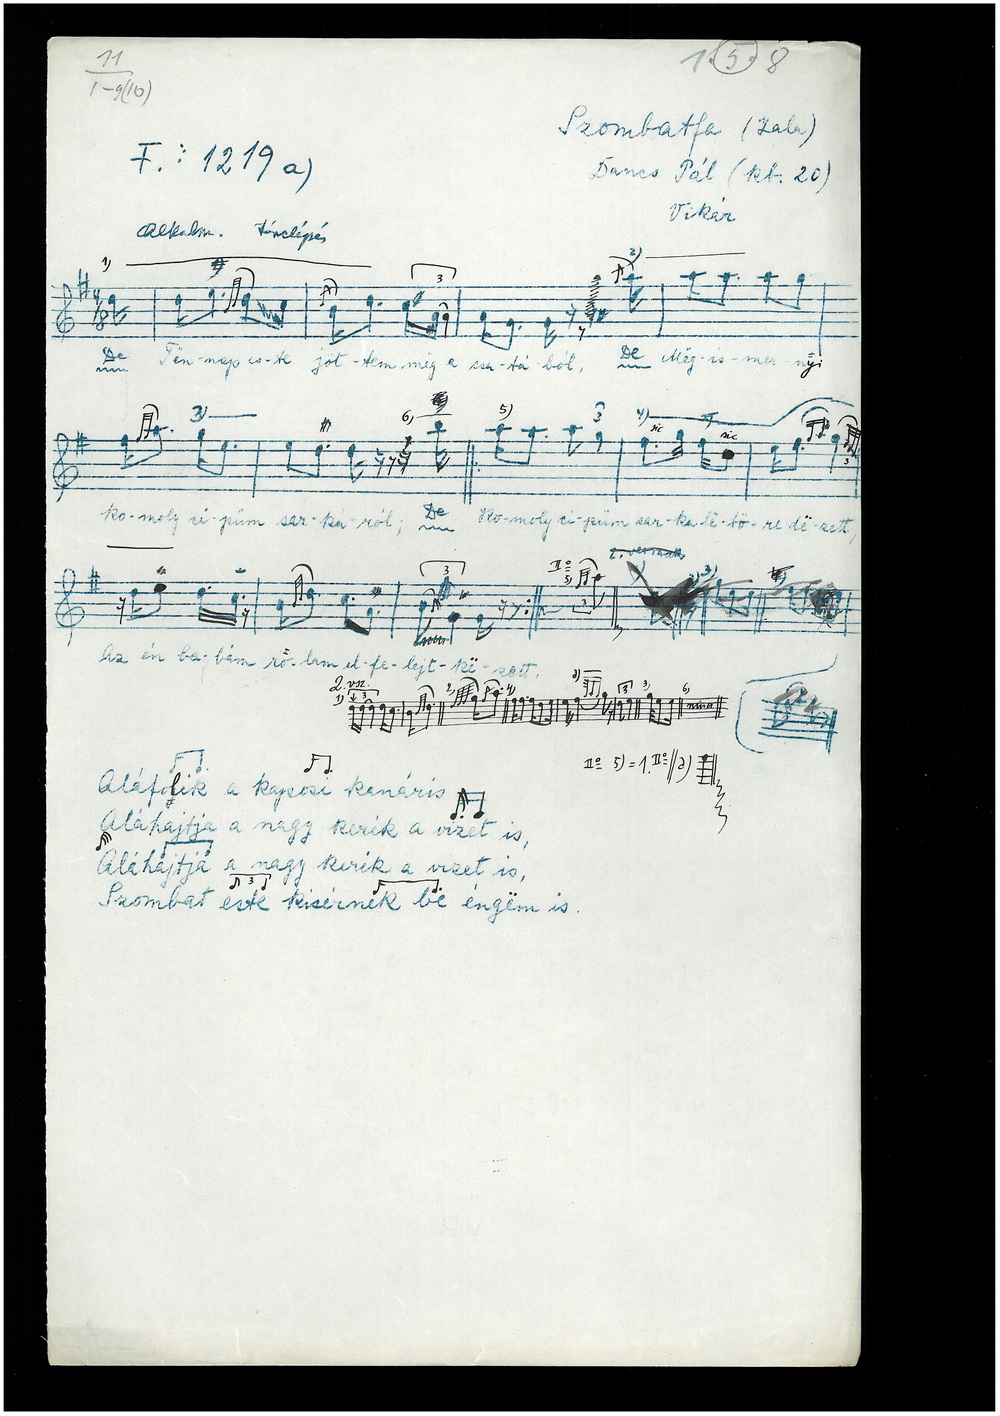 11
1-9(10)
1.(5.) 8
Szombatfa (Zala)
F.: 1219 a)
Dancs Pál (kb. 20)
Vikár
Alkalm. tánclépés
1) 3 2)
De Tën-nap es-te jöt-tem még a csa-tá-ból, De Mëg-is-mer-nyi
3) 6) 5) 3 4) sic sic
ko-moly ci-püm sar-ká-ról; De Ko-moly ci-püm sar-ka lë-tö-re-dë-zett,
3 IIº 5) 3
Az én ba-bám rö-lam el-fe-lejt-kë-zett.
2. vsz.
1) 3 2) 4) a) 3 3) 6)
IIº 5) = 1. IIº a)
Aláfolik a kaposi kanáris
Aláhajtja a nagy kerék a vizet is,
Aláhajtja a nagy kerék a vizet is,
3
Szombat este kisérnek be éngëm is.